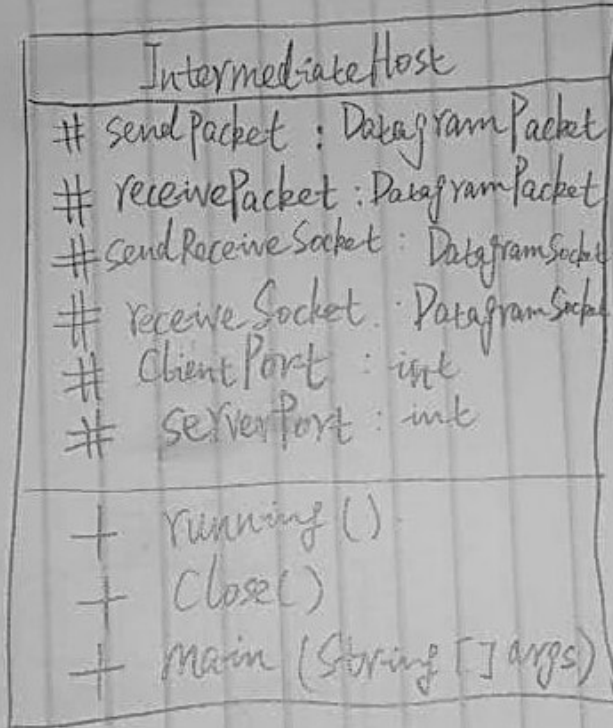 IntermediateHost
# sendPacket : DatagramPacket
# receivePacket : DatagramPacket
# sendReceiveSocket : DatagramSocket
# receiveSocket : DatagramSocket
# ClientPort : int
# serverPort : int
+ running()
+ Close()
+ main (String [] args)